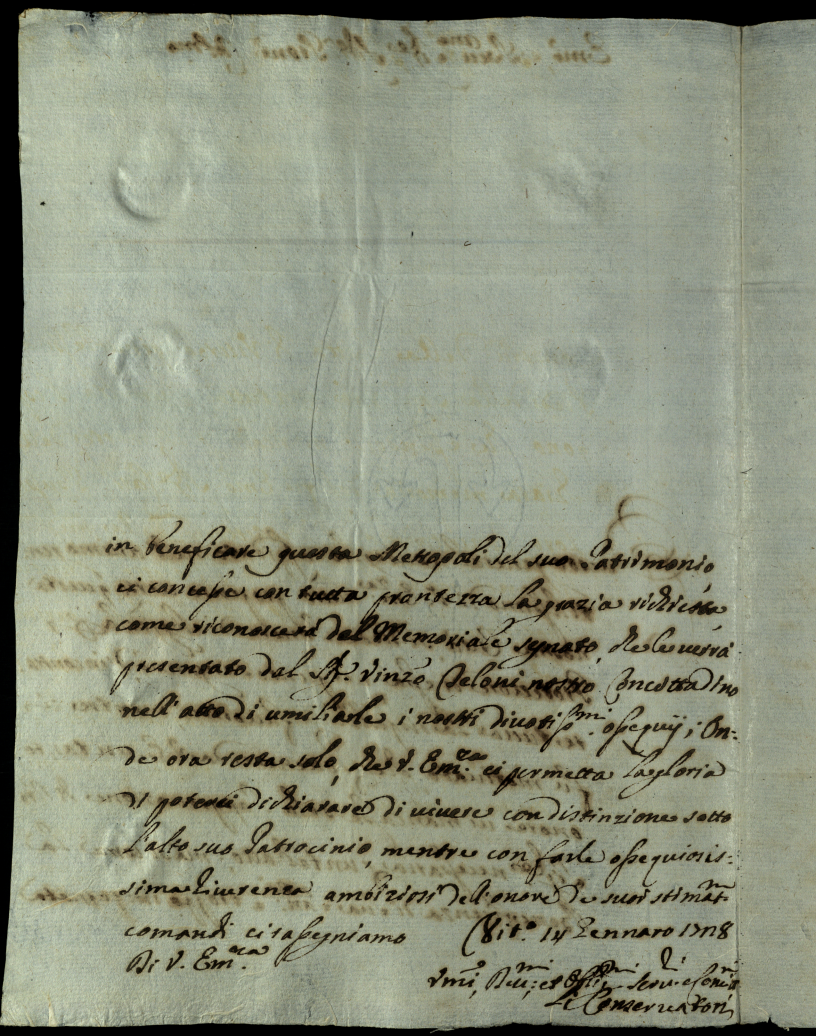 in beneficare questa Metropoli del suo Patrimonio
ci concesse con tutta prontezza la grazia richiesta
come riconoscerà dal Memoriale segnato, che le verrà
presentato dal Sig.r Vinzo nostro Concittadino
nell'atto di umiliarle i nostri divotiss.mi ossequij; On-
de ora resta solo, che V. Em.za ci permetta la gloria
di poterci dichiarare di vivere con distinzione sotto
l'alto suo Patrocinio, mentre con farle ossequiosis-
sima riverenza ambiziosi dell'onore de suoi stimat.mi
comandi ci rassegniamo 14 Gennaro
Di V. Em.za
Vmi, et Serv.
Li Conservatori